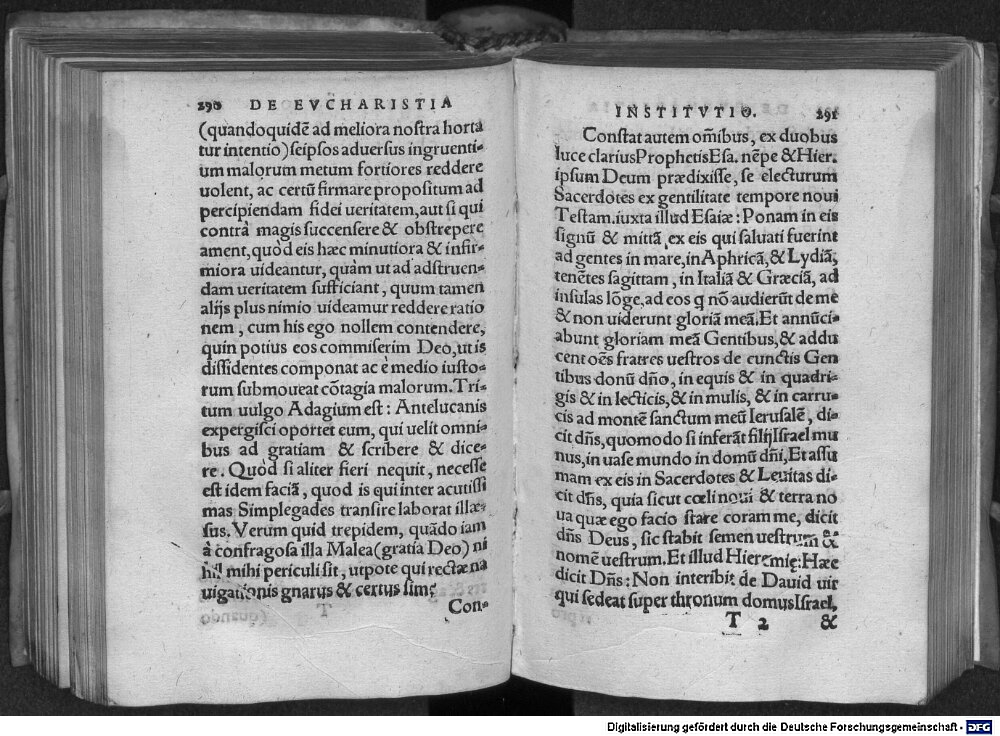 290 DE EVCHARISTIA
(quandoquidē ad meliora nostra horta
tur intentio) seipsos aduersus ingruenti-
um malorum metum fortiores reddere
uolent, ac certū firmare propositum ad
percipiendam fidei ueritatem, aut si qui
contrà magis succensere & obstrepere
ament, quòd eis hæc minutiora & infir-
miora uideantur, quàm ut ad adstruen-
dam ueritatem sufficiant, quum tamen
alijs plus nimio uideamur reddere ratio
nem, cum his ego nollem contendere,
quin potius eos commiserim Deo, ut is
dissidentes componat ac è medio iusto-
rum submoueat cōtagia malorum. Tri-
tum uulgo Adagium est: Antelucanis
expergisci oportet eum, qui uelit omni-
bus ad gratiam & scribere & dice-
re. Quòd si aliter fieri nequit, necesse
est idem faciā, quod is qui inter acutissi
mas Simplegades transire laborat illæ-
sus. Verum quid trepidem, quādo iam
à confragosa illa Malea (gratia Deo) ni
hil mihi periculi sit, utpote qui rectæ na
uigationis gnarus & certus sim?
T
Con-
INSTITVTIO. 291
Constat autem om̄ibus, ex duobus
luce clarius Prophetis Esa. nēpe & Hier.
ipsum Deum prædixisse, se electurum
Sacerdotes ex gentilitate tempore noui
Testam. iuxta illud Esaiæ: Ponam in eis
signū & mittā ex eis qui saluati fuerint
ad gentes in mare, in Aphricā, & Lydiā,
tenētes sagittam, in Italiā & Græciā, ad
insulas lōge, ad eos q nō audierūt de me
& non uiderunt gloriā meā. Et annūci-
abunt gloriam meā Gentibus, & addu
cent oēs fratres uestros de cunctis Gen
tibus donū dño, in equis & in quadri-
gis & in lecticis, & in mulis, & in carru-
cis ad montē sanctum meū Ierusalē, di-
cit dñs, quomodo si inferāt filij Israel mu
nus, in uase mundo in domū dñi, Et assu
mam ex eis in Sacerdotes & Leuitas di-
cit dñs, quia sicut cœli noui & terra no
ua quæ ego facio stare coram me, dicit
dñs Deus, sic stabit semen uestrum &
nomē uestrum. Et illud Hieremię: Hæc
dicit Dñs: Non interibit de Dauid uir
qui sedeat super thronum domus Israel,
T 2 &
Digitalisierung gefördert durch die Deutsche Forschungsgemeinschaft - DFG